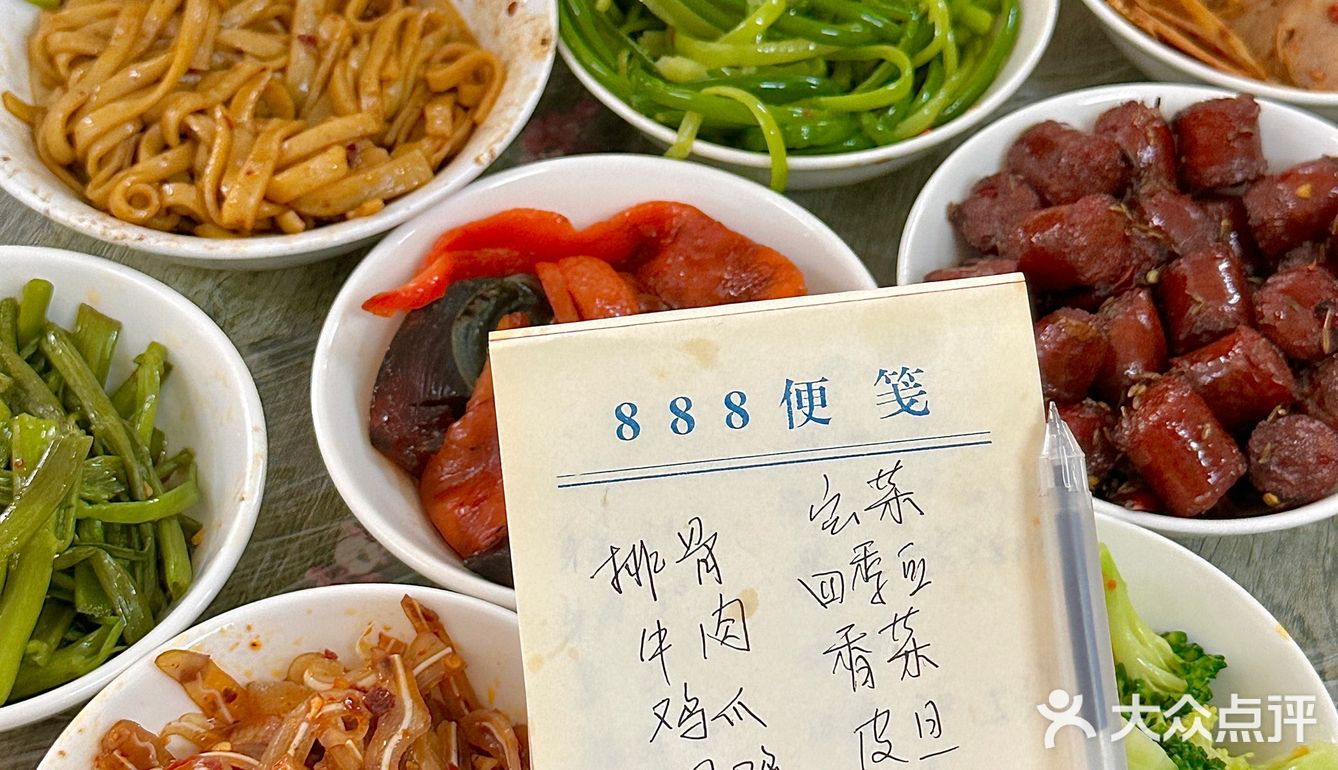 888便笺
排骨
牛肉
鸡爪
宫菜
四季豆
香菜
皮旦
大众点评